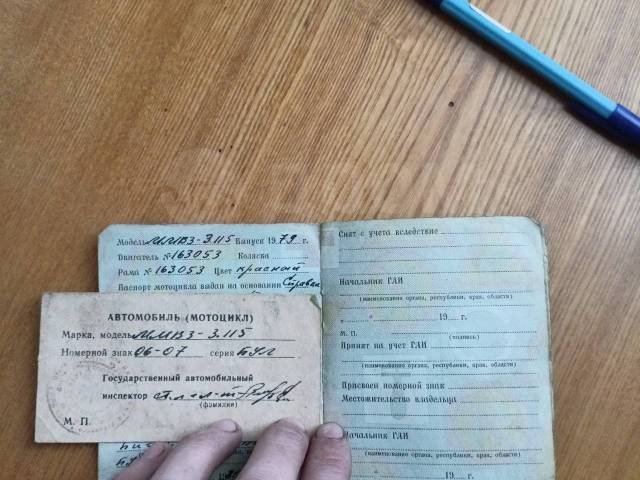 Модель ММВЗ-3.115 Выпуск 1979 г.
Двигатель № 163053 Коляска
Рама № 163053 Цвет красный
Паспорт мотоцикла выдан на основании Справки
АВТОМОБИЛЬ (МОТОЦИКЛ)
Марка, модель ММВЗ-3.115
Номерной знак 06-07 серия БУЛ
Государственный автомобильный
инспектор
(фамилия)
М. П.
Снят с учета вследствие
Начальник ГАИ
(наименование органа, республики, края, области)
19 г.
М. П.
(подпись)
Принят на учет ГАИ
(наименование органа, республики, края, области)
Присвоен номерной знак
Местожительство владельца
Начальник ГАИ
(наименование органа, республики, края, области)
19 г.